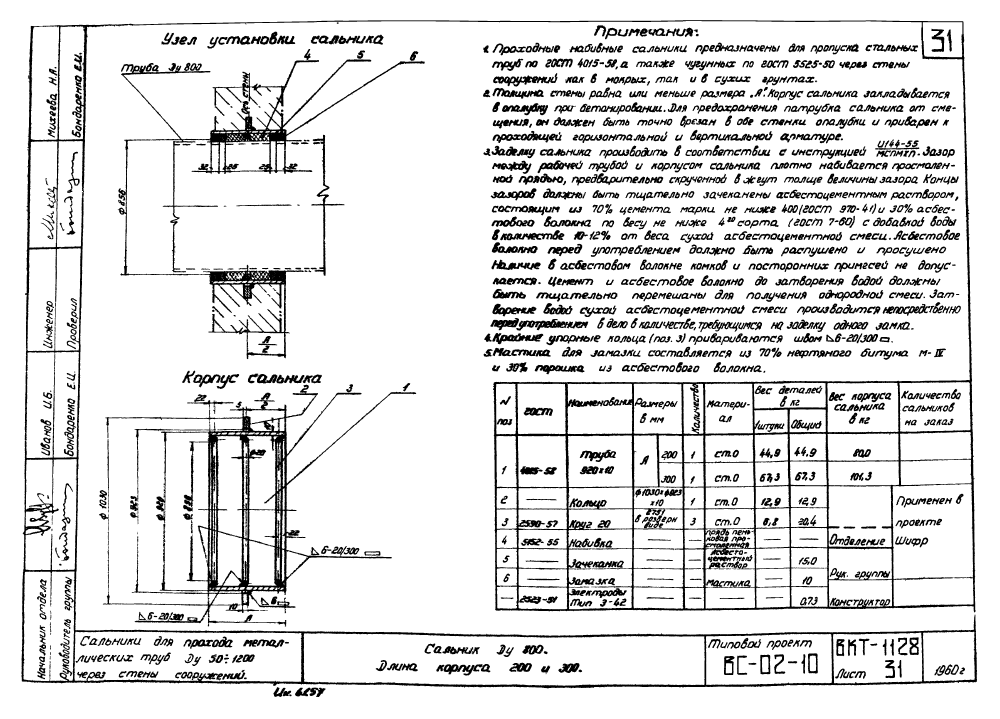 Узел установки сальника
4
5
6
Труба Ду 800
ось стены
32
25
25
32
А
2
Корпус сальника
22
5
А
2
2
3
1
ф 1030
6-20/300
10
6
6-20/300
А
Примечания:
31
1. Проходные набивные сальники предназначены для пропуска стальных
труб по ГОСТ 4015-58, а также чугунных по ГОСТ 5525-50 через стены
сооружений как в мокрых, так и в сухих грунтах.
2. Толщина стены равна или меньше размера „А". Корпус сальника закладывается
в опалубку при бетонировании. Для предохранения патрубка сальника от сме-
щения, он должен быть точно врезан в обе стенки опалубки и приварен к
проходящей горизонтальной и вертикальной арматуре.
3. Заделку сальника производить в соответствии с инструкцией И144-55
МСПМХП. Зазор
между рабочей трубой и корпусом сальника плотно набивается просмолен-
ной прядью, предварительно скрученной в жгут толще величины зазора. Концы
зазоров должны быть тщательно зачеканены асбестоцементным раствором,
состоящим из 70% цемента марки не ниже 400 (ГОСТ 970-41) и 30% асбес-
тового волокна по весу не ниже 4го сорта (ГОСТ 7-60) с добавкой воды
в количестве 10-12% от веса сухой асбестоцементной смеси. Асбестовое
волокно перед употреблением должно быть распушено и просушено
Наличие в асбестовом волокне комков и посторонних примесей не допус-
кается. Цемент и асбестовое волокно до затворения водой должны
быть тщательно перемешаны для получения однородной смеси. Зат-
ворение водой сухой асбестоцементной смеси производится непосредственно
перед употреблением в дело в количестве, требующимся на заделку одного замка.
4. Крайние упорные кольца (поз. 3) привариваются швом 6-20/300
5. Мастика для замазки составляется из 70% нефтяного битума М-IV
и 30% порошка из асбестового волокна.
N поз | ГОСТ | Наименование | Размеры в мм | Количество | Матери-ал | Вес деталей в кг | 1 штуки | Общий | Вес корпуса сальника в кг | Количество сальников на заказ
1 | 4015-58 | Труба 920×10 | А | 200 | 1 | ст.0 | 44,9 | 44,9 | 80,0
300 | 1 | ст.0 | 67,3 | 67,3 | 101,3
2 | — | Кольцо | ×10 | 1 | ст.0 | 12,9 | 12,9 | Применен в
3 | 2590-57 | Круг 20 | в разверн виде | 3 | ст.0 | 6,8 | 20,4 | проекте
4 | 5152-55 | Набивка | — | — | прядь пень-ковая про-смоленная | — | — | Отделение | Шифр
5 | Зачеканка | — | — | Асбесто-цементный раствор | — | 15,0
6 | Замазка | — | — | мастика | — | 10 | Рук. группы
— | 2523-51 | Электроды Тип Э-42 | — | — | — | — | 0,73 | Конструктор
Михеева Н.А.
Бондаренко Е.И.
Инженер
Проверил
Иванов И.Б.
Бондаренко Е.И.
Начальник отдела
Руководитель группы
Сальники для прохода метал-
лических труб Ду 50÷1200
через стены сооружений.
Сальник Ду 800.
Длина корпуса 200 и 300.
Типовой проект
ВС-02-10
ВКТ-1128
Лист 31
1960г
Ин. 6257